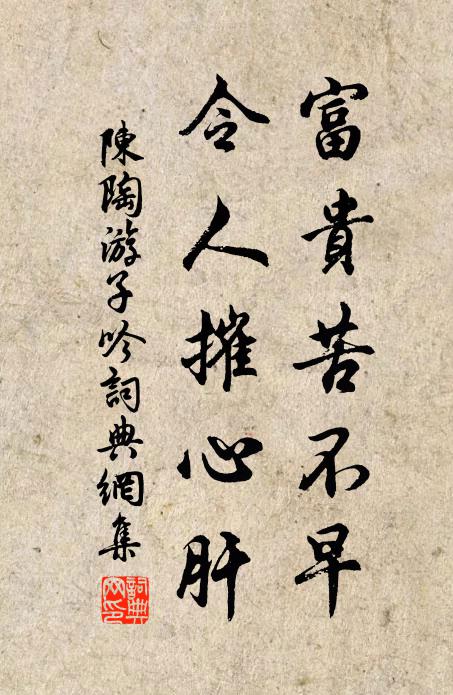 富貴苦不早
令人摧心肝
陳陶游子吟詞典網集
詞典网印